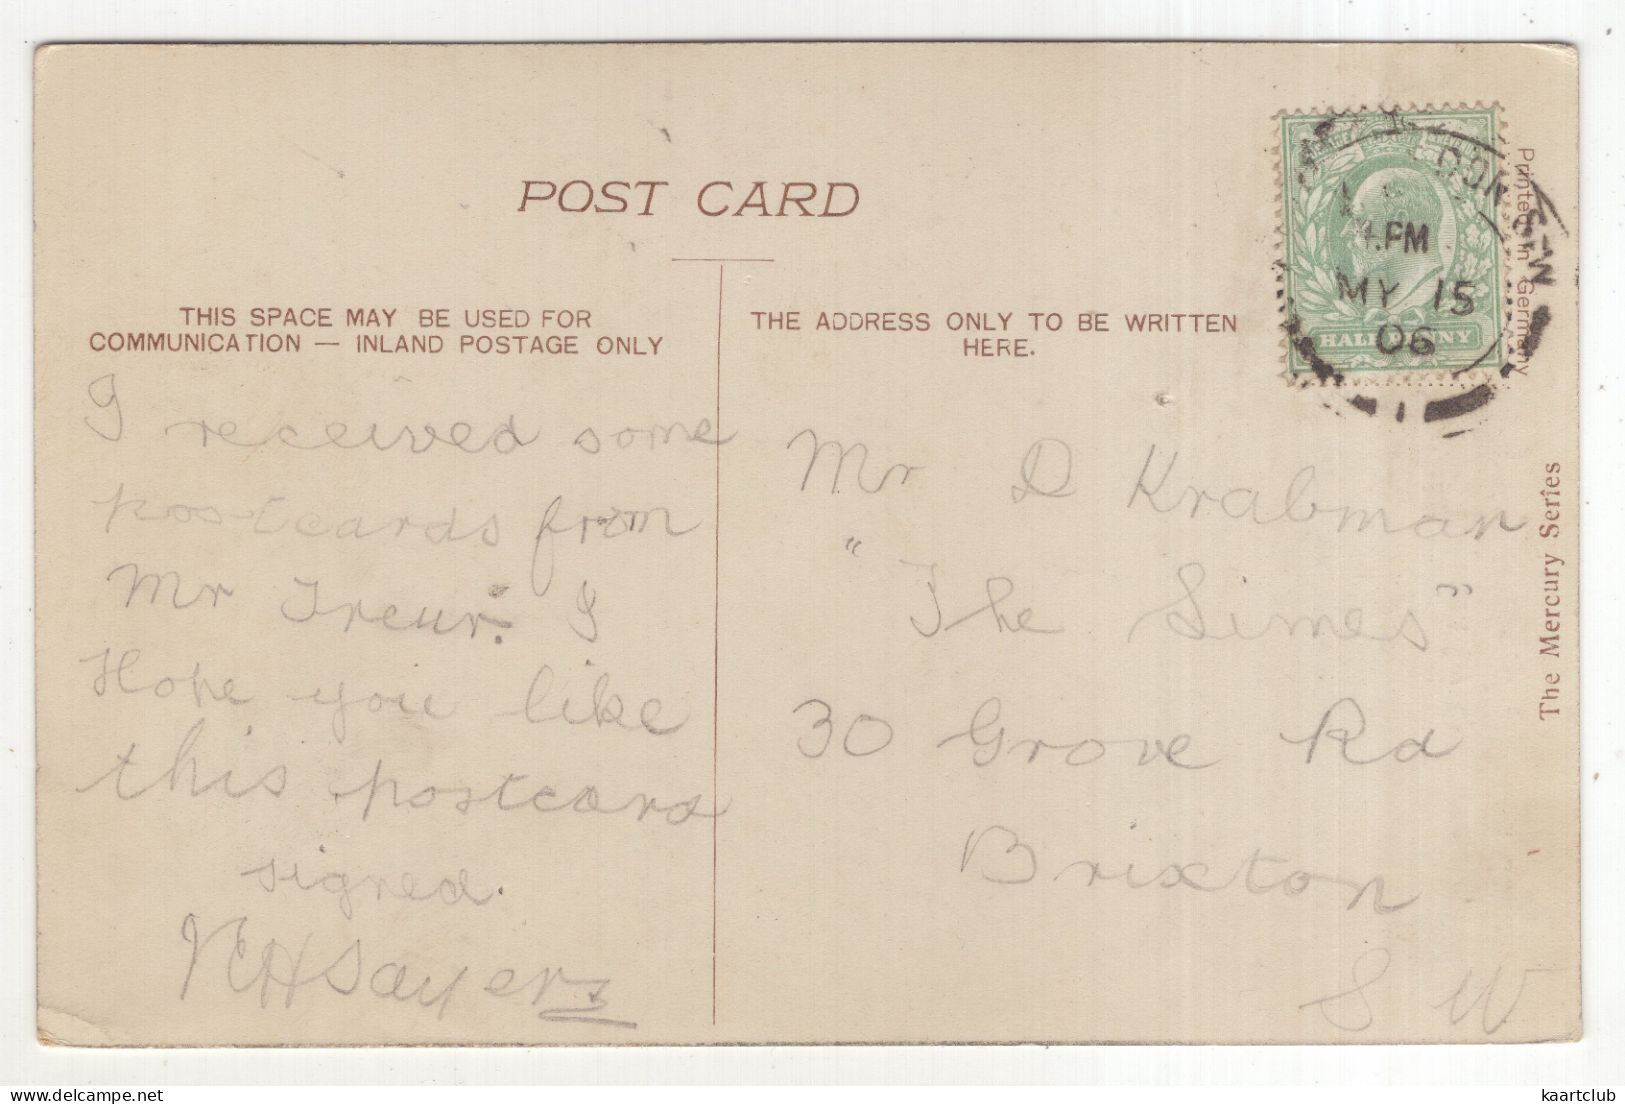 POST CARD
THIS SPACE MAY BE USED FOR
COMMUNICATION — INLAND POSTAGE ONLY
I received some
postcards from
Mr Treur. I
Hope you like
this postcard
signed.
Sayers
THE ADDRESS ONLY TO BE WRITTEN
HERE.
Mr D Krabman
"The Limes"
30 Grove Rd
Brixton
S W
PM
MY 15
06
HALFPENNY
Printed in Germany
The Mercury Series
kaartclub